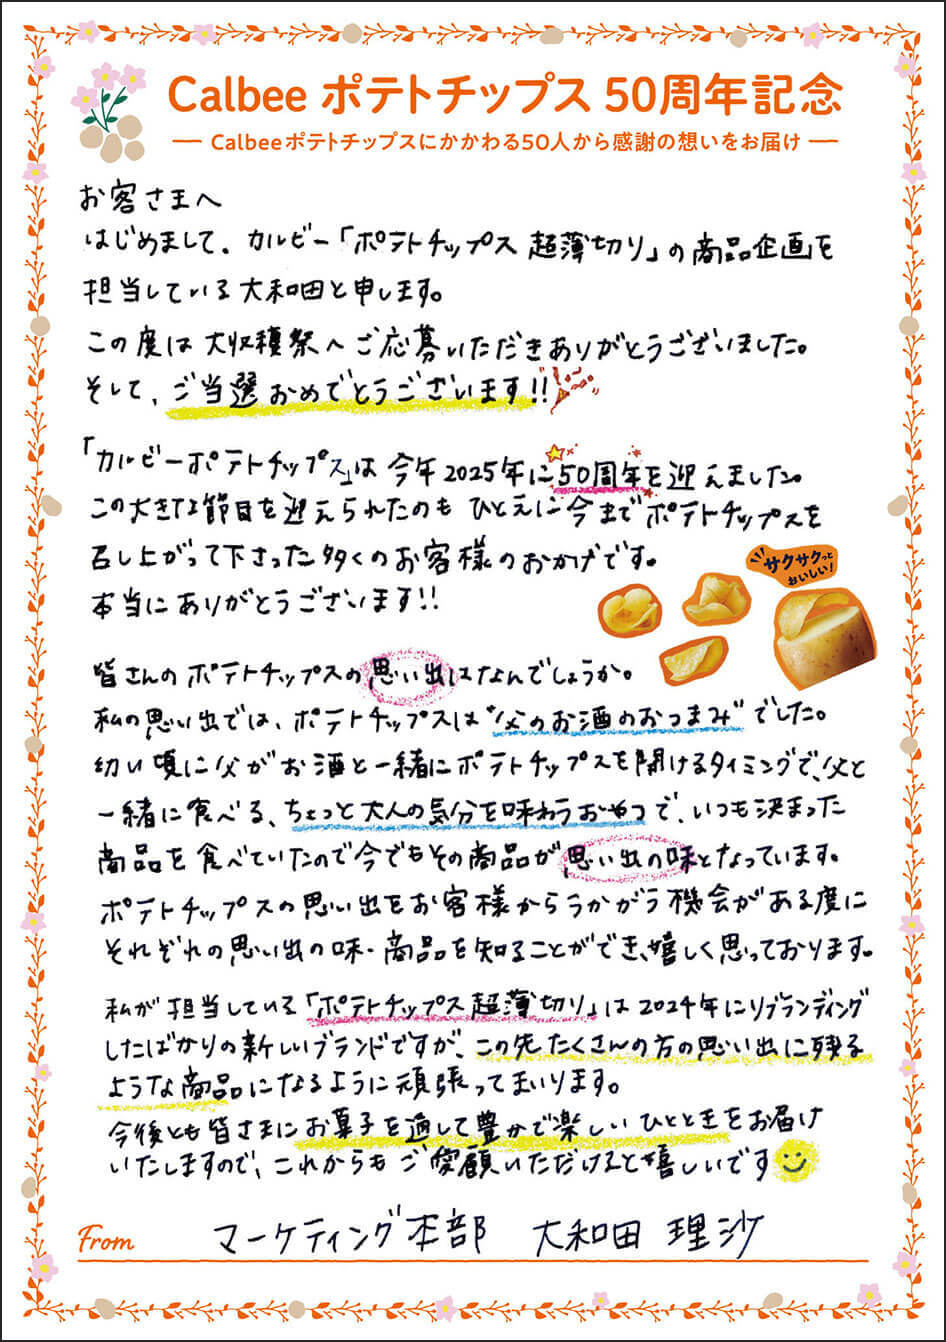 Calbee ポテトチップス 50周年記念
Calbeeポテトチップスにかかわる50人から感謝の想いをお届け
お客さまへ
はじめまして。カルビー「ポテトチップス 超薄切り」の商品企画を
担当している大和田と申します。
この度は大収穫祭へご応募いただきありがとうございました。
そして、ご当選おめでとうございます!!
「カルビーポテトチップス」は今年2025年に50周年を迎えました。
この大きな節目を迎えられたのもひとえに今までポテトチップスを
召し上がって下さった多くのお客様のおかげです。
本当にありがとうございます!!
サクサクっと
おいしい!
皆さんのポテトチップスの思い出はなんでしょうか。
私の思い出では、ポテトチップスは"父のお酒のおつまみ"でした。
幼い頃に父がお酒と一緒にポテトチップスを開けるタイミングで、父と
一緒に食べる、ちょっと大人の気分を味わうおやつで、いつも決まった
商品を食べていたので今でもその商品が思い出の味となっています。
ポテトチップスの思い出をお客様からうかがう機会がある度に
それぞれの思い出の味・商品を知ることができ、嬉しく思っております。
私が担当している「ポテトチップス超薄切り」は2024年にリブランディング
したばかりの新しいブランドですが、この先たくさんの方の思い出に残る
ような商品になるように頑張ってまいります。
今後とも皆さまにお菓子を通して豊かで楽しいひとときをお届け
いたしますので、これからもご愛顧いただけると嬉しいです
From マーケティング本部 大和田 理沙